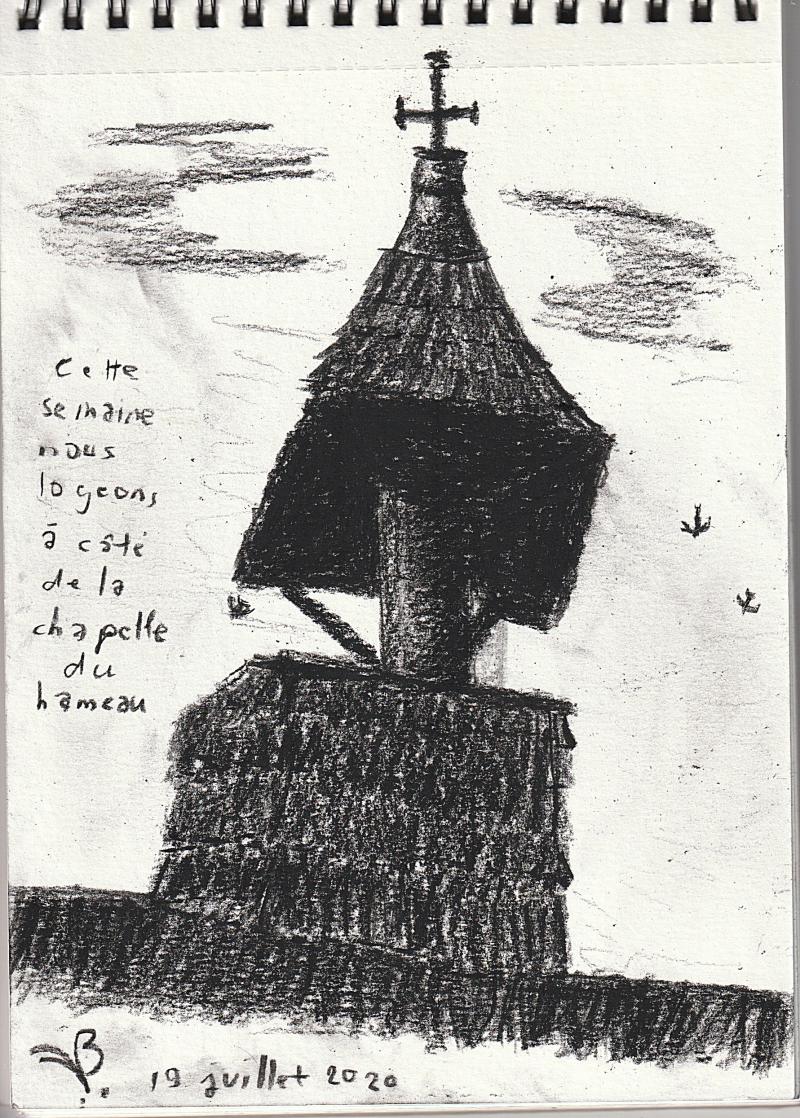 Cette
semaine
nous
logeons
à côté
de la
chapelle
du
hameau
B
19 juillet 2020